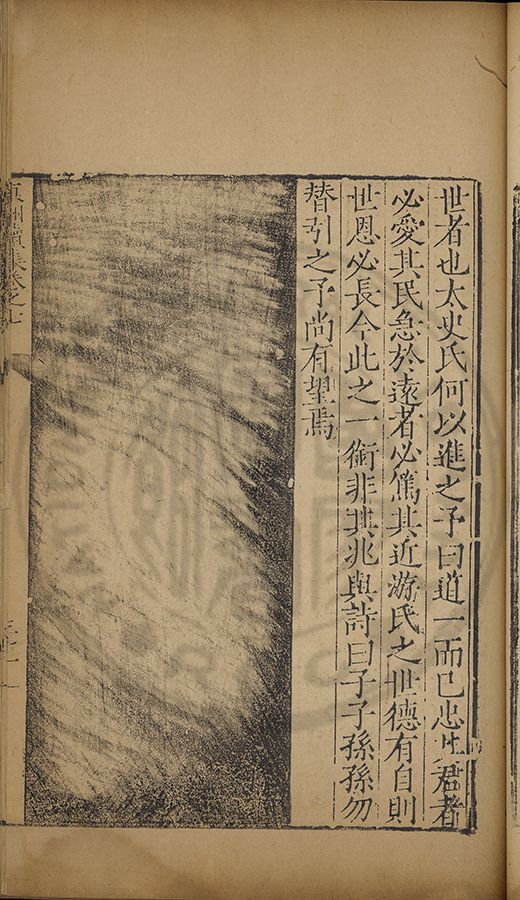 世者也太史氏何以進之予曰道一而已忠其君者
必愛其民急於遠者必篤其近游氏之世德有自則
世恩必長今此之一銜非其兆與詩曰子子孫孫勿
替引之予尚有望焉
集卷之七